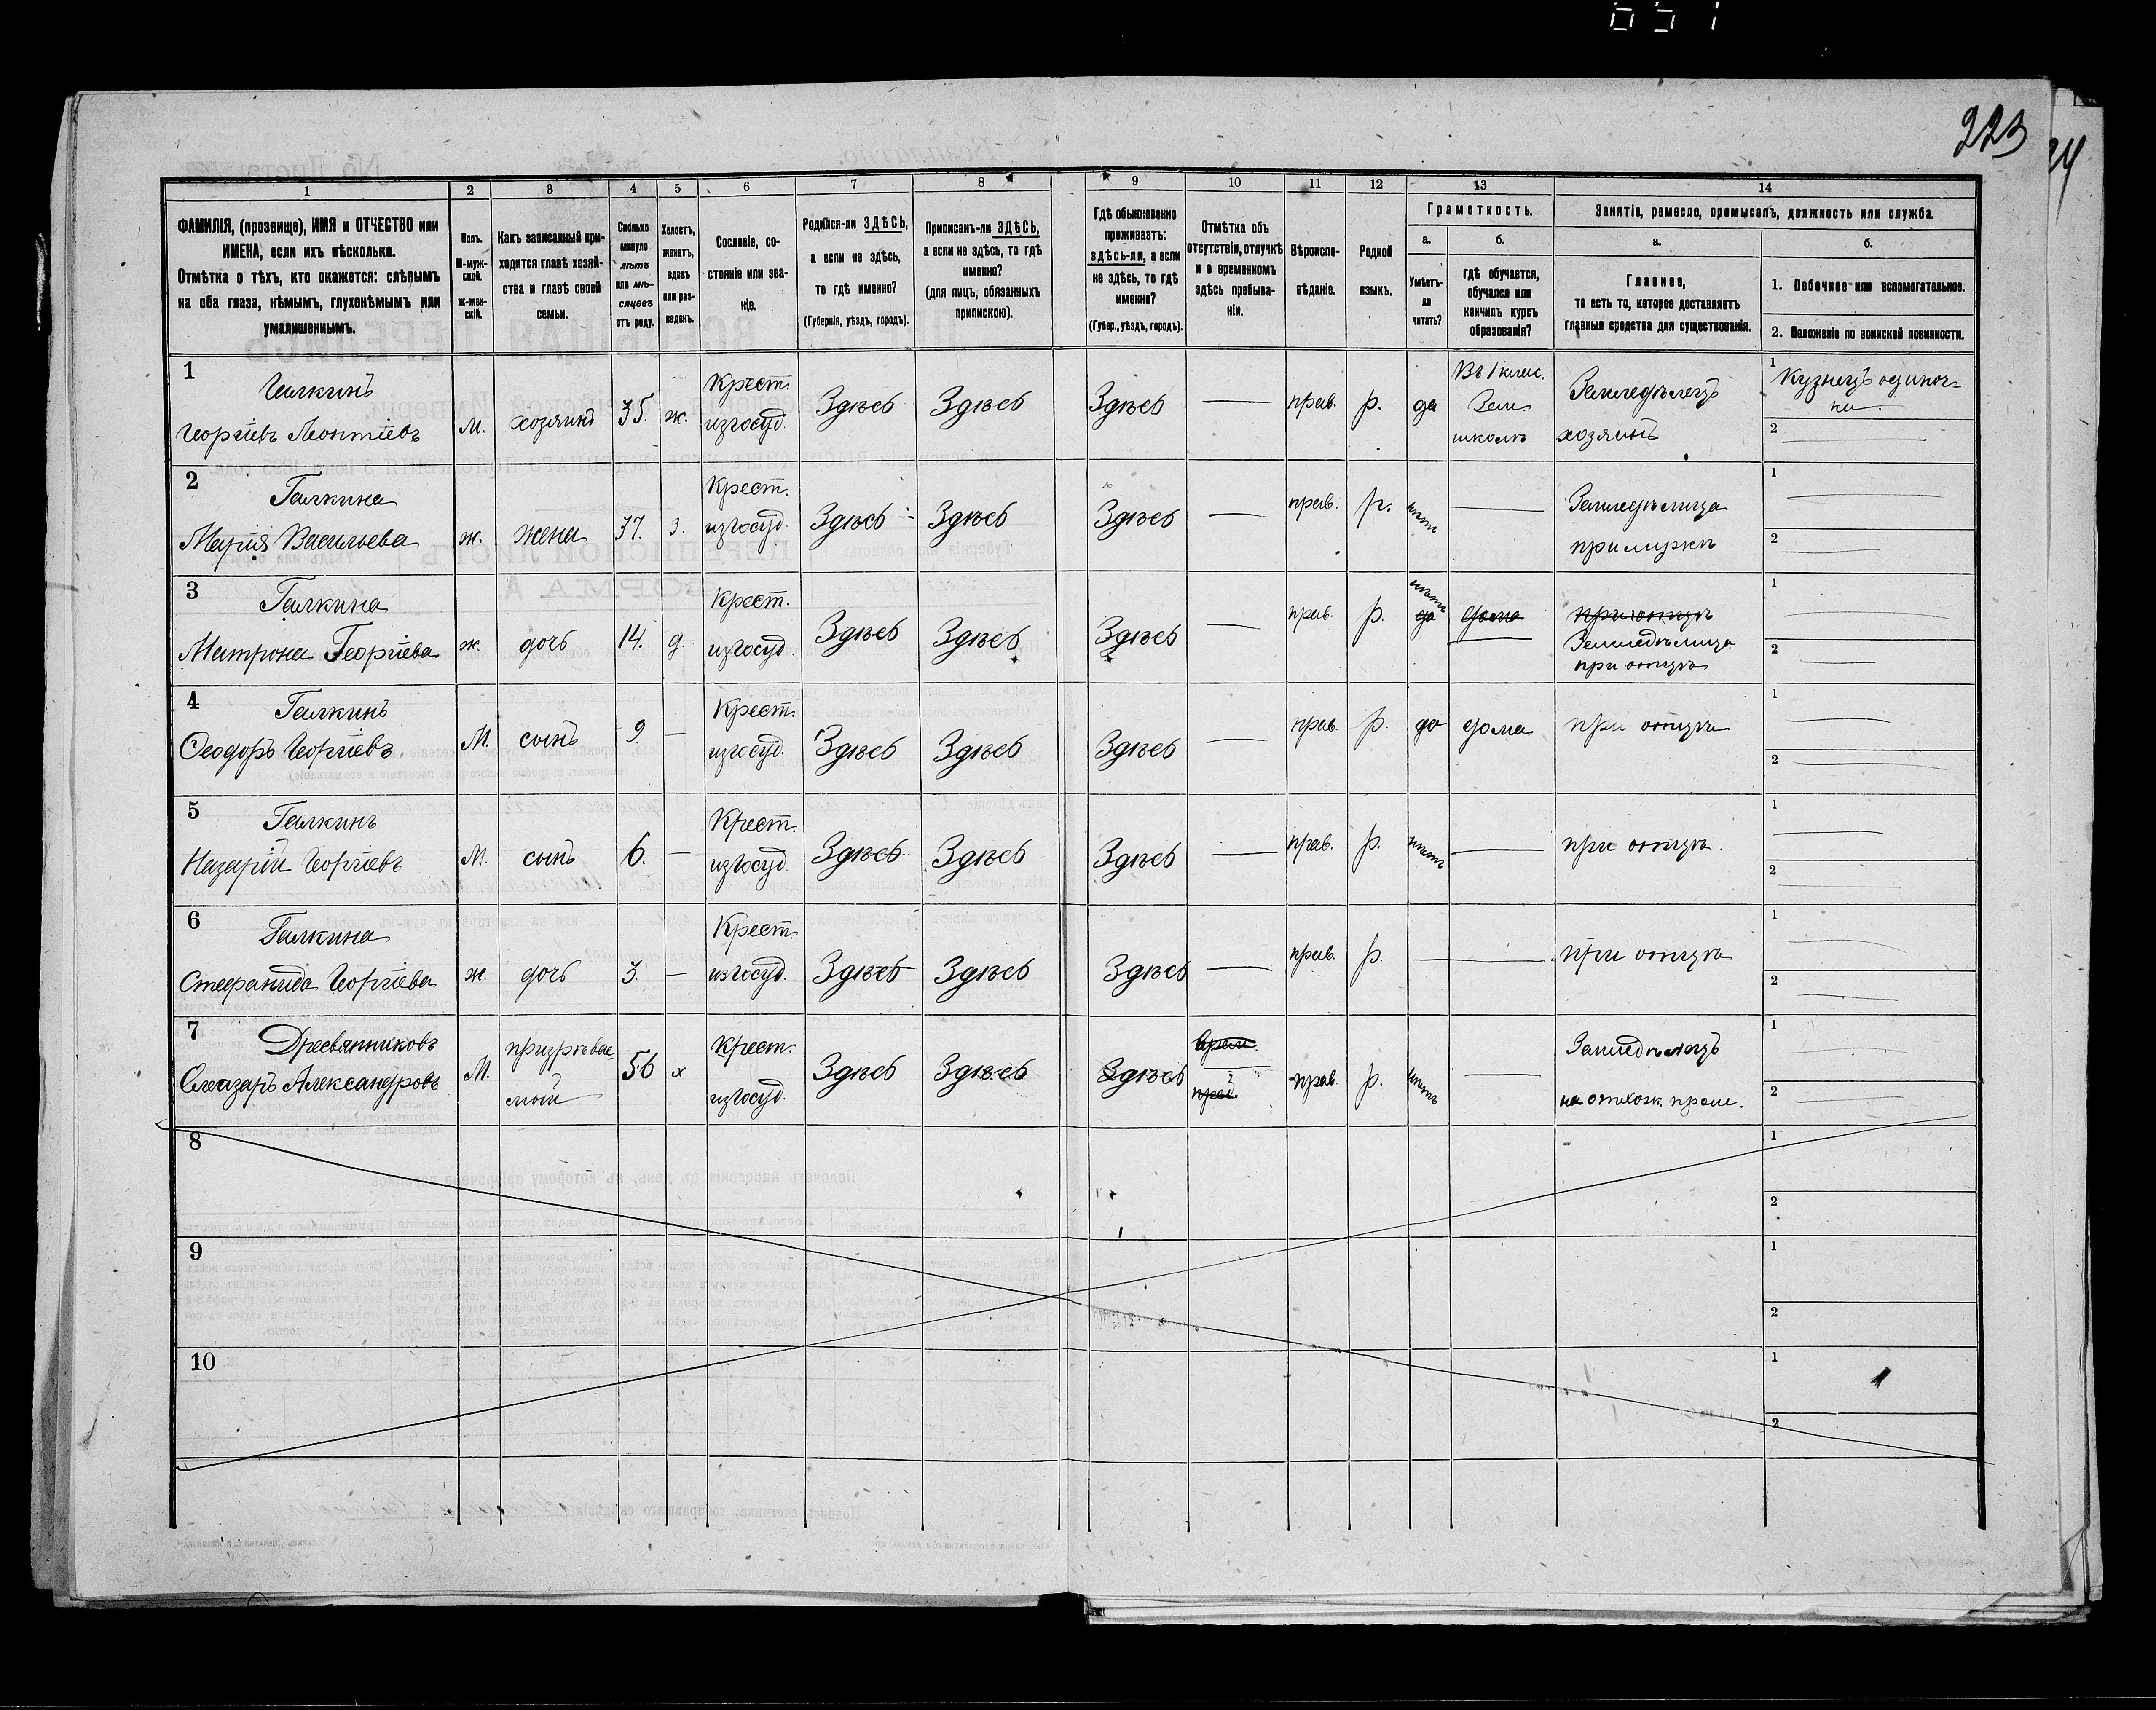 223
1 2 3 4 5 6 7 8 9 10 11 12 13 14
ФАМИЛІЯ, (прозвище), ИМЯ и ОТЧЕСТВО или
ИМЕНА, если ихъ нѣсколько.
Отмѣтка о тѣхъ, кто окажется: слѣпымъ
на оба глаза, нѣмымъ, глухонѣмымъ или
умалишеннымъ.
Полъ.
М-муж-
ской.
ж-жен-
скій.
Какъ записанный при-
ходится главѣ хозяй-
ства и главѣ своей
семьи.
Сколько
минуло
лѣтъ
или мѣ-
сяцевъ
отъ роду.
Холостъ,
женатъ,
вдовъ
или раз-
веденъ.
Сословіе, со-
стояніе или зва-
ніе.
Родился-ли ЗДѢСЬ,
а если не здѣсь,
то гдѣ именно?
(Губернія, уѣздъ, городъ).
Приписанъ-ли ЗДѢСЬ,
а если не здѣсь, то гдѣ
именно?
(для лицъ, обязанныхъ
припискою).
Гдѣ обыкновенно
проживаетъ:
здѣсь-ли, а если
не здѣсь, то гдѣ
именно?
(Губер., уѣздъ, городъ).
Отмѣтка объ
отсутствіи, отлучкѣ
и о временномъ
здѣсь пребыва-
ніи.
Вѣроиспо-
вѣданіе.
Родной
языкъ.
Грамотность.
а.
Умѣетъ-
ли
читать?
б.
гдѣ обучается,
обучался или
кончилъ курсъ
образованія?
Занятіе, ремесло, промыселъ, должность или служба.
а.
Главное,
то есть то, которое доставляетъ
главныя средства для существованія.
б.
1. Побочное или вспомогательное.
2. Положеніе по воинской повинности.
1
Галкинъ
Георгіевъ Леонтіевъ
м.
хозяинъ
35.
ж.
Крест.
изгосуд.
Здѣсь
Здѣсь
Здѣсь
прав.
р.
да
Въ 1 клас.
Зем.
школѣ
Земледѣлецъ
хозяинъ
1
Кузнецъ одиноч-
ка.
2
2
Галкина
Марія Васильева
ж.
жена
37.
з.
Крест.
изгосуд.
Здѣсь
Здѣсь
Здѣсь
прав.
р.
нѣтъ
Земледѣлица
при мужѣ
1
2
3
Галкина
Матрона Георгіева
ж.
дочь
14.
д.
Крест.
изгосуд.
Здѣсь
Здѣсь
Здѣсь
прав.
р.
нѣтъ
да
дома
при отцѣ
Земледѣлица
при отцѣ
1
2
4
Галкинъ
Ѳеодоръ Георгіевъ
М.
сынъ
9.
Крест.
изгосуд.
Здѣсь
Здѣсь
Здѣсь
прав.
р.
да
дома
при отцѣ
1
2
5
Галкинъ
Назарій Георгіевъ
М.
сынъ
6.
Крест.
изгосуд.
Здѣсь
Здѣсь
Здѣсь
прав.
р.
нѣтъ
при отцѣ.
1
2
6
Галкина
Стефанида Георгіева
ж.
дочь
3.
Крест.
изгосуд.
Здѣсь
Здѣсь
Здѣсь
прав.
р.
при отцѣ
1
2
7
Древянниковъ
Елеазаръ Александровъ
М.
призрѣвае
мый
56
х
Крест.
изгосуд.
Здѣсь
Здѣсь
Здѣсь
прав.
р.
нѣтъ
Земледѣлецъ
на отхож. пром.
1
2
8
1
2
9
1
2
10
1
2